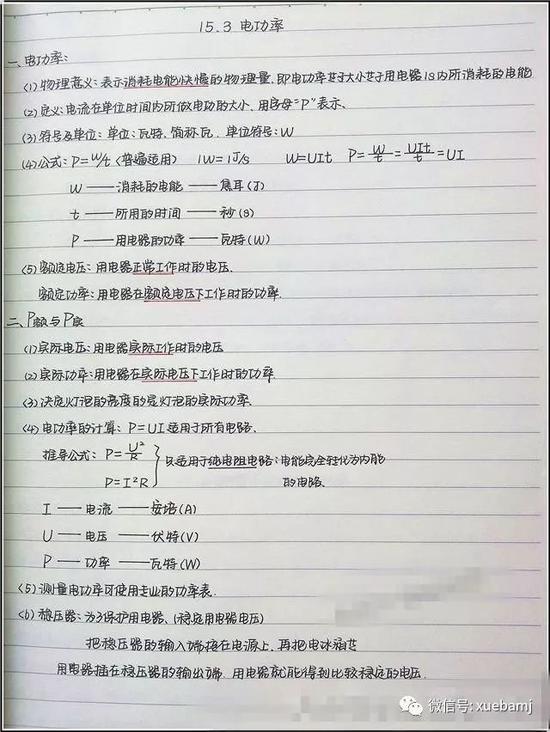 15.3 电功率
一、电功率:
(1) 物理意义: 表示消耗电能快慢的物理量, 即电功率等于大小等于用电器1s内所消耗的电能
(2) 定义: 电流在单位时间内所做电功的大小, 用字母"P"表示、
(3) 符号及单位: 单位: 瓦特, 简称瓦. 单位符号: W
(4) 公式: P=W/t (普遍适用) 1W=1J/s W=UIt P=W/t=UIt/t=UI
W —— 消耗的电能 —— 焦耳(J)
t —— 所用的时间 —— 秒(s)
P —— 用电器的功率 —— 瓦特(W)
(5) 额定电压: 用电器正常工作时的电压.
额定功率: 用电器在额定电压下工作时的功率.
二、P额与P实
(1) 实际电压: 用电器实际工作时的电压
(2) 实际功率: 用电器在实际电压下工作时的功率
(3) 决定灯泡的亮度的是灯泡的实际功率.
(4) 电功率的计算: P=UI 适用于所有电路、
推导公式: P=U²/R
P=I²R
只适用于纯电阻电路: 电能完全转化为内能
的电路、
I —— 电流 —— 安培(A)
U —— 电压 —— 伏特(V)
P —— 功率 —— 瓦特(W)
(5) 测量电功率可使用专业的功率表.
(6) 稳压器: 为了保护用电器、(稳定用电器电压)
把稳压器的输入端接在电源上, 再把电冰箱等
用电器插在稳压器的输出端. 用电器就能得到比较稳定的电压.
微信号: xuebamj